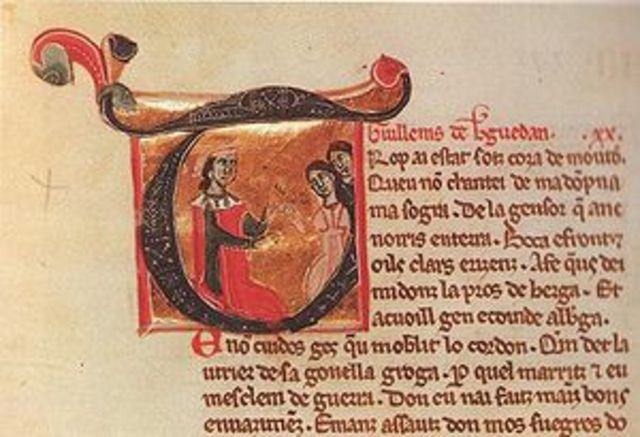 Guillems de Bguedan. .xx.
TRop ai estat sotz coza de moutō.
Queu nō chantei de ma dōpna
ma sogra. De la gensor q̄ anc
noiris enterra. Boca e front
oils clars erienz. Afe q̄us dei
midonz la pros de berga. Et
acuoill gen ecoinde albga.
E nō cuidos ges q̄u moblit lo cordon. Qin det la
utrier de sa gonella groga. P quel marritz ⁊ eu
mesclem de guerra. Don eu nai faitz mainz bons
envazimēz. E manz assautz don mos fuegres do